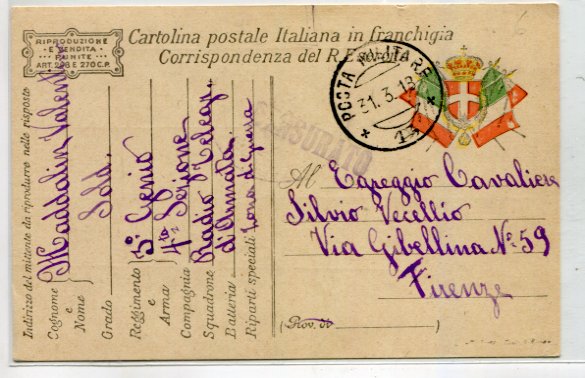 RIPRODUZIONE
E VENDITA
PUNITE
ART. 296 E 270 C.P.
Cartolina postale Italiana in franchigia
Corrispondenza del R. Esercito
POSTA MILITARE
31.3.18
13
CENSURATO
Al Egreggio Cavaliere
Silvio Vecellio
Via Gibellina N° 59
Firenze
(Prov. di
Indirizzo del mittente da riprodurre nelle risposte
Cognome e Nome Maddalin Valentin
Grado Sold.
Reggimento e Arma 3° Genio
Compagnia 4ta Sezione
Squadrone Radio Telegr.
Batteria d'Armata
Riparti speciali Zona di guerra